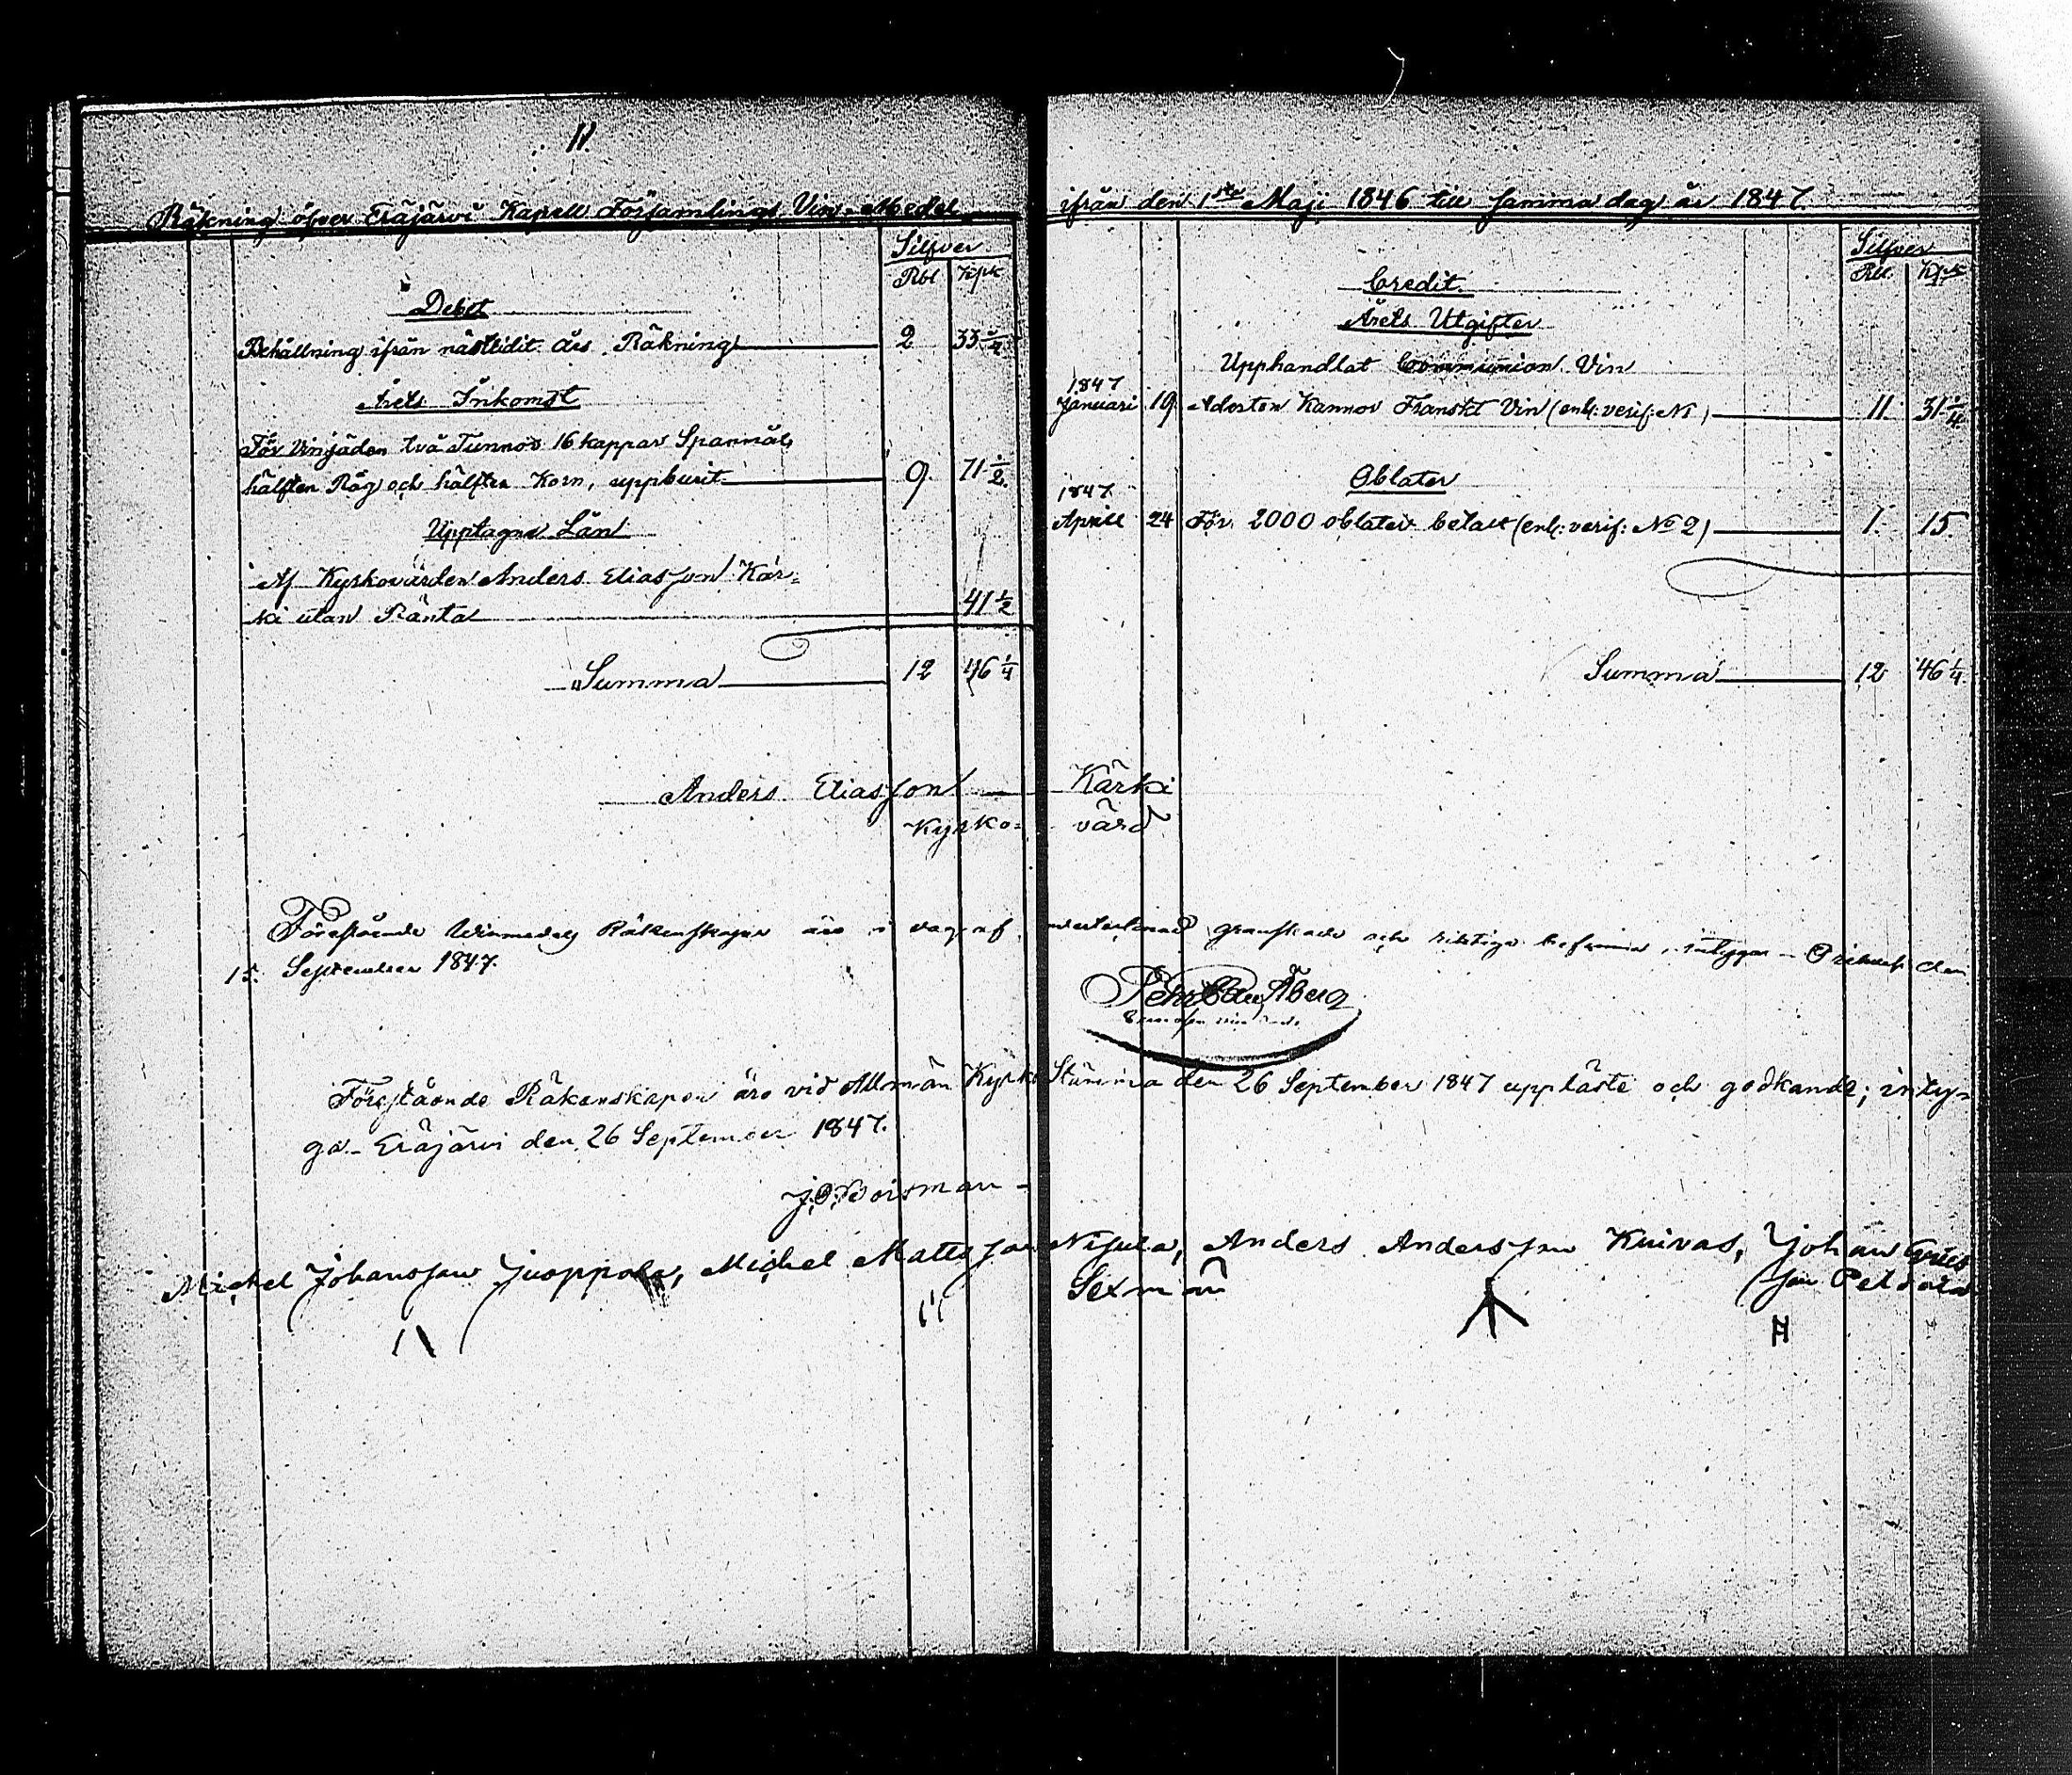 11.
Räkning öfver Eräjärvi Kapell Församlings Vin-Medel
Silfver
Rbl Kpk
Debet
Behållning ifrån nästledit års Räkning 2 33 1/4
Årets Inkomst
För Vinsäden två Tunnor 16 kappar Spanmål,
hälften Råg och hälften Korn, uppburit 9. 71 1/2.
Upptagne Lån
Af Kyrkovärden Anders Eliasson Kär-
ki utan Ränta 41 1/2
Summa 12 46 1/4
ifrån den 1sta Maji 1846 till samma dag år 1847.
Silfver
Rbl. Kpk
Credit.
Årets Utgifter
Upphandlat Communion Vin
1847
Januari 19. Aderton Kannor Franskt Vin (enl: verif: N1) 11. 31 1/4
Oblater
1847
Aprill 24 För 2000 oblater betalt (enl: verif: No 2) 1. 15.
Summa 12 46 1/4.
Anders Eliasson Kärki
Kyrko- värd
Förestående Winmedels Räkenskaper äro i dag af undertecknad granskade och riktiga befunna, intygar - Orihvesi den
15. September 1847.
Pehr Åberg
Förestående Räkenskaper äro vid Allmän Kyrko Stämma den 26 September 1847 uppläste och godkände; inty-
gar - Eräjärvi den 26 September 1847.
Michel Johansson Juoppala, Michel Mattsson Nisula, Anders Andersson Kuivas, Johan
Sexmän son